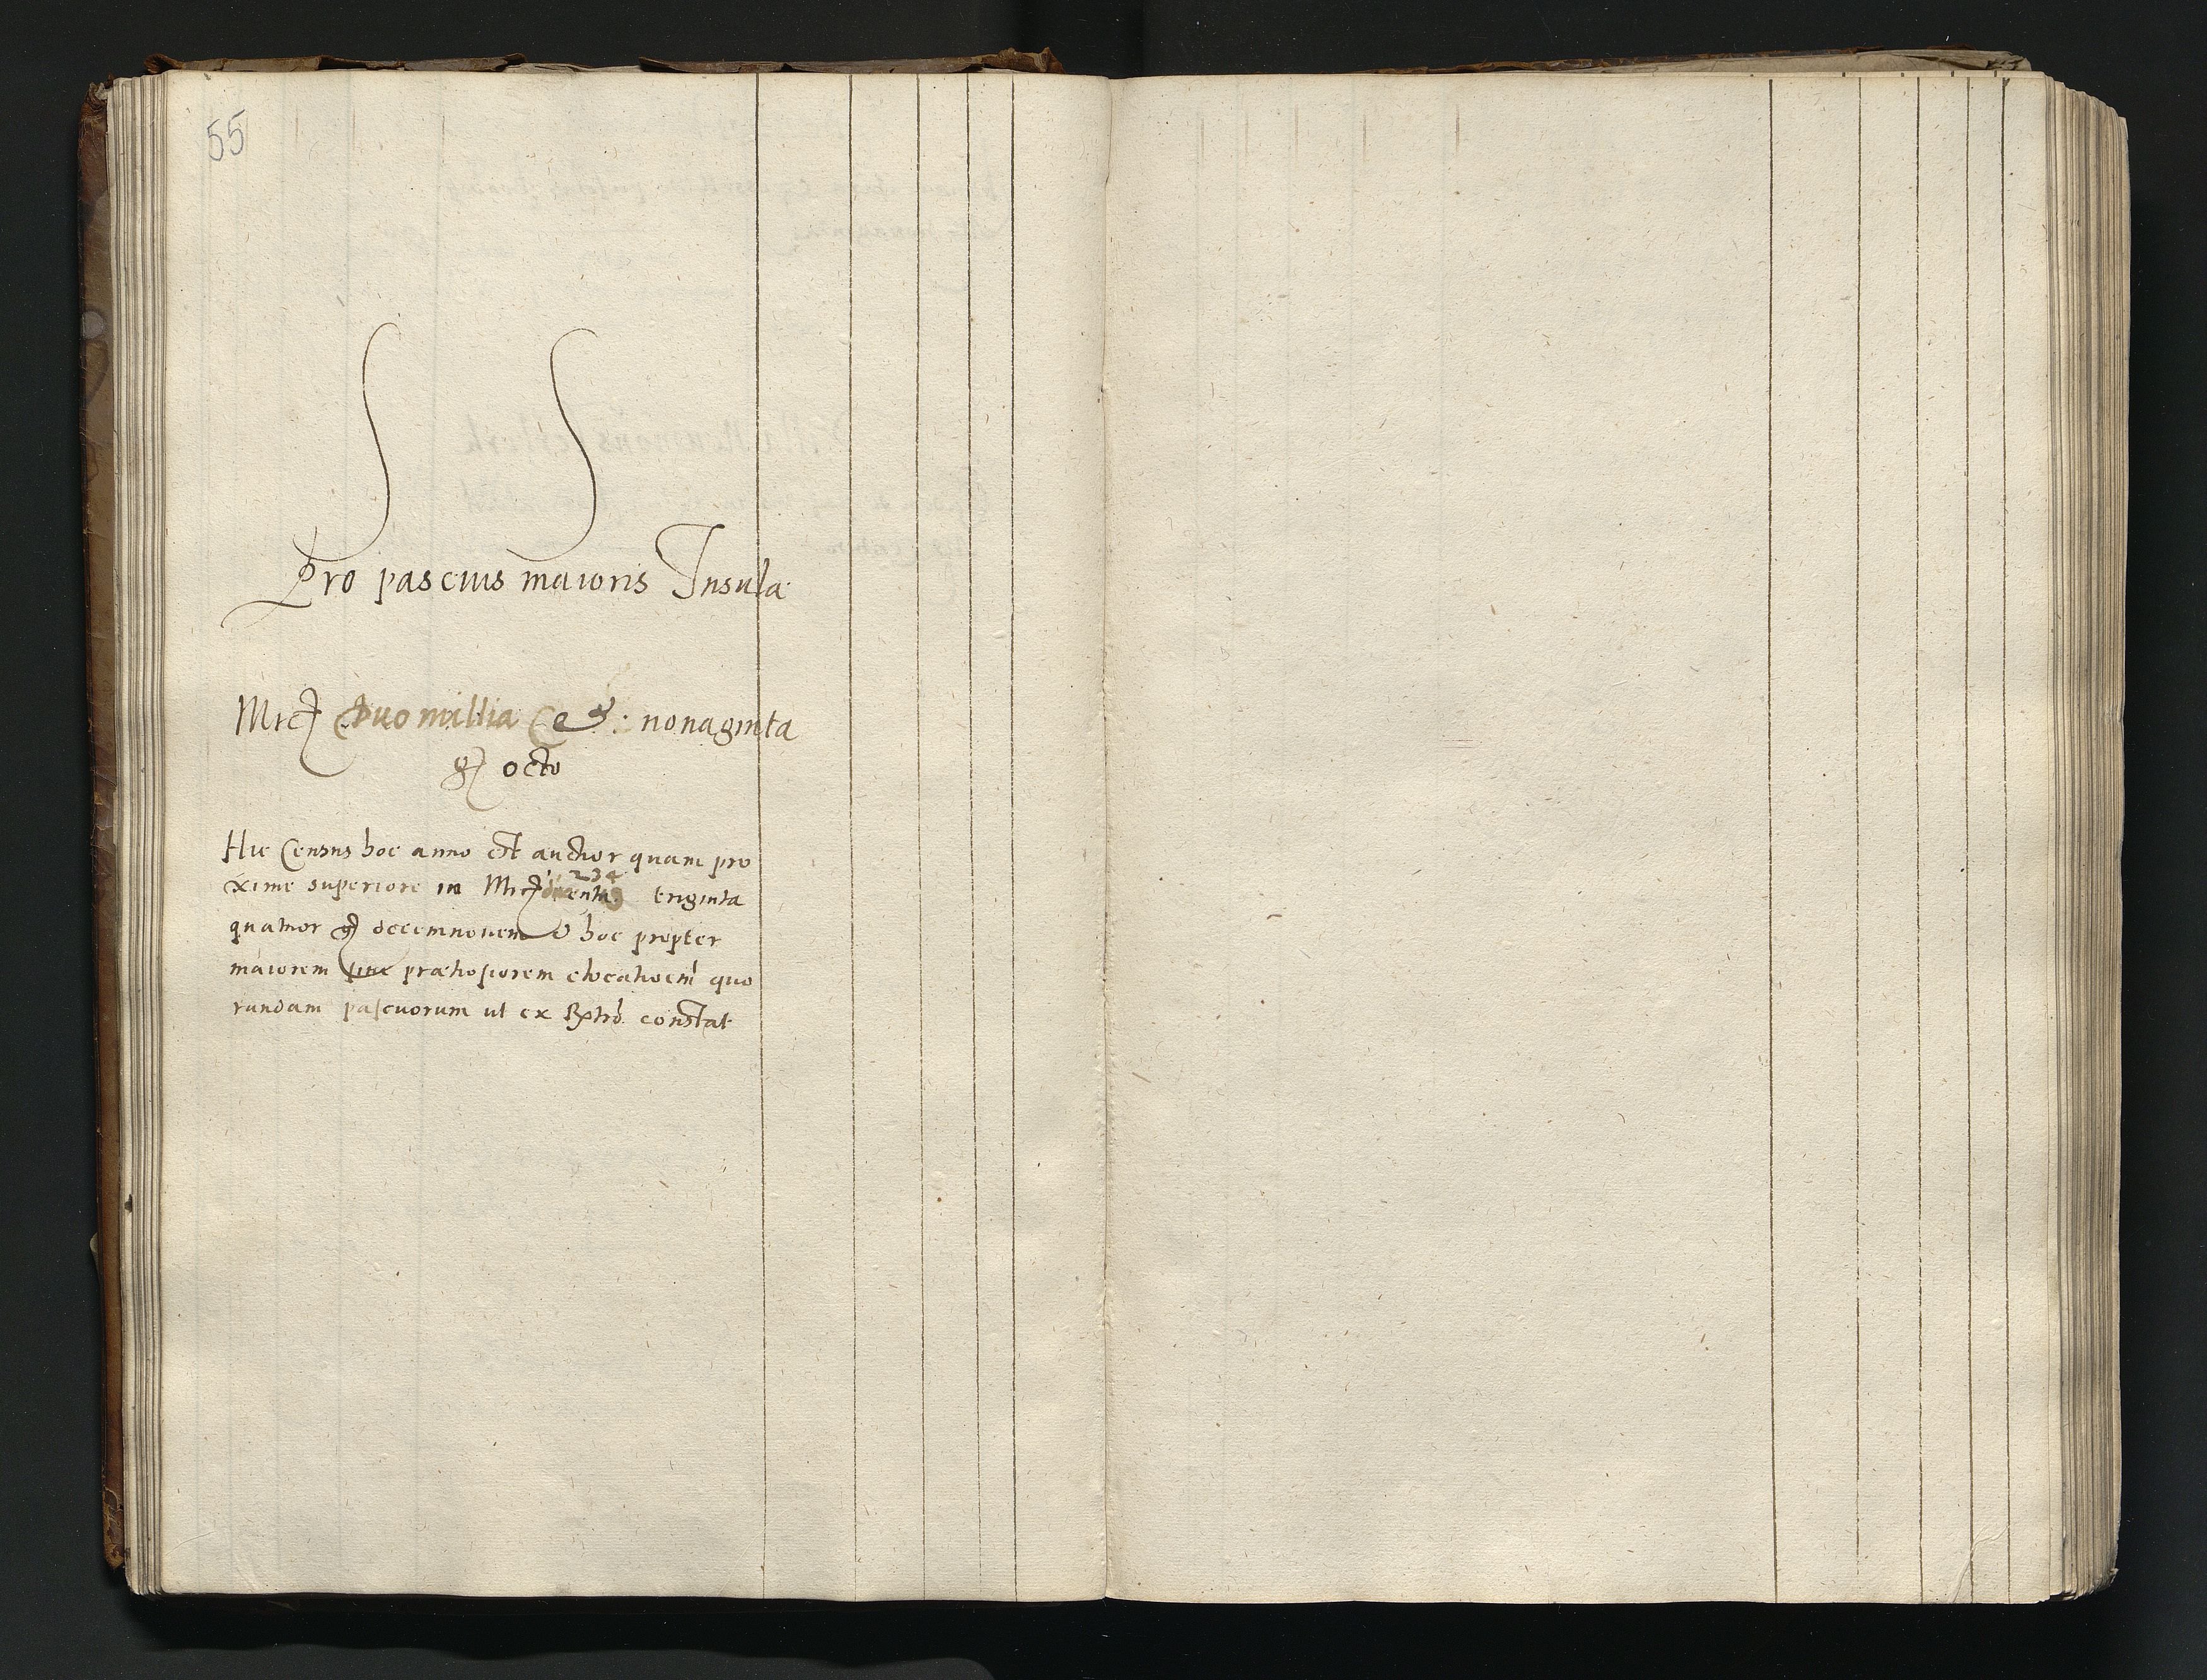 55
S S
Pro pascuis maioris Insula
Mrc Duo millia Ce &: nonaginta
g octo
Hic Census hoc anno est auctior quam pro
xime superiore in Mrc 234 triginta
quatuor g decemnouem & hoc propter
maiorem siue praetiosiorem elocationem quo
rundam pascuorum ut ex Rxtro constat